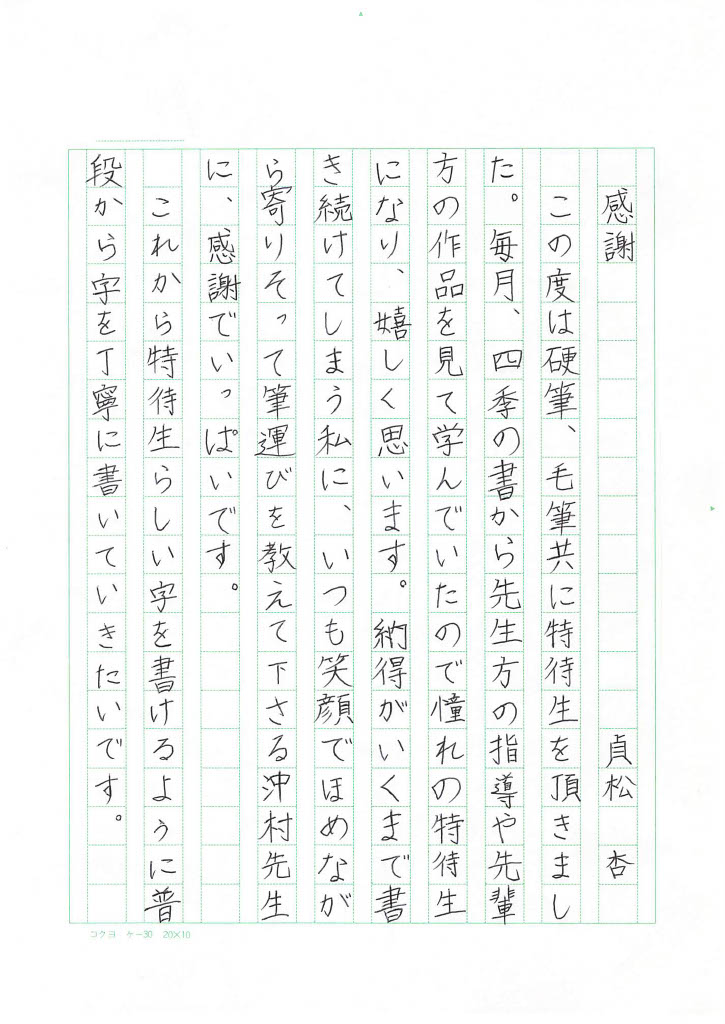 感謝　貞松　杏
この度は硬筆、毛筆共に特待生を頂きまし
た。毎月、四季の書から先生方の指導や先輩
方の作品を見て学んでいたので憧れの特待生
になり、嬉しく思います。納得がいくまで書
き続けてしまう私に、いつも笑顔でほめなが
ら寄りそって筆運びを教えて下さる沖村先生
に、感謝でいっぱいです。
これから特待生らしい字を書けるように普
段から字を丁寧に書いていきたいです。
コクヨ　ケー30　20×10